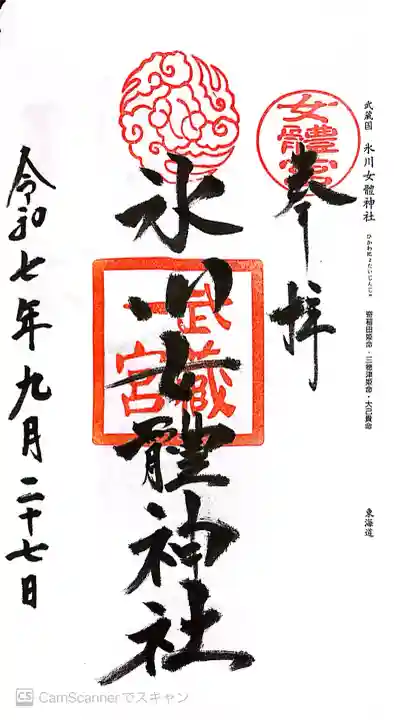 武蔵国　氷川女體神社　ひかわにょたいじんじゃ　奇稲田姫命・三穂津姫命・大己貴命　東海道
奉拝
女體宮
氷川女體神社
武蔵
一宮
令和七年九月二十七日
CS CamScannerでスキャン